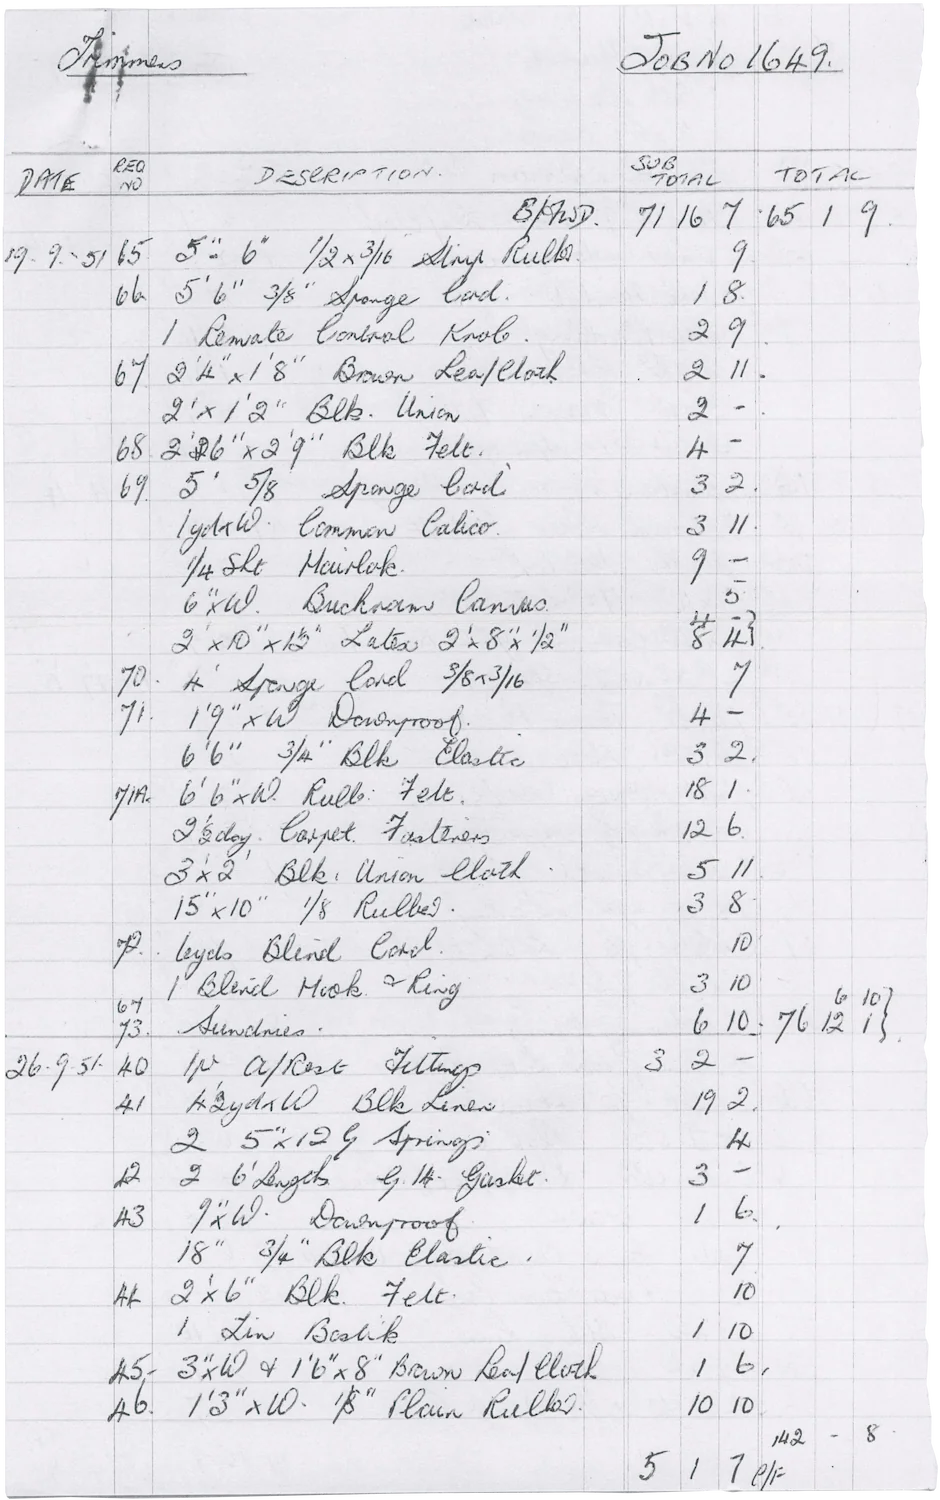 Trimmers JOB NO 1649.
DATE REQ NO DESCRIPTION. SUB TOTAL TOTAL
B/FWD. 71 16 7 65 1 9.
19-9-51 65 5" 6" 1/2 x 3/16 Strip Rubber. 9.
66 5'6" 3/8" Sponge Cord. 1 8.
1 Remote Control Knob. 2 9
67 2'4" x 1'8" Brown Lea/Cloth 2 11.
2' x 1'2" Blk. Union 2 -
68 2'6" x 2'9" Blk Felt. 4 -
69. 5' 5/8 Sponge Cord 3 2.
1yd x W. Common Calico. 3 11.
1/4 Sht Hairlok. 9 -
6" x W. Buckram Canvas. 5
4 -
2' x 10" x 1½" Latex 2' x 8" x 1/2" 8 4}
70. 4' Sponge Cord 3/8 x 3/16 7
71. 1'9" x W Downproof. 4 -
6'6" 3/4" Blk Elastic 3 2.
71A. 6'6" x W. Rubb: Felt. 18 1.
2½doz. Carpet. Fasteners 12 6.
3' x 2' Blk. Union Cloth 5 11
15" x 10" 1/8 Rubber. 3 8
72. 6yds Blind Cord. 10
1 Blind Hook & Ring 3 10
67 6 10}
73. Sundries. 6 10. 76 12 1}.
26-9-51. 40 1pr A/Rest Fittings 3 2 -
41 4½yd x W Blk Linen 19 2.
2 5" x 12 G Springs 4
42 2 6' Lengths G.14. Gasket. 3 -
43 9" x W. Downproof 1 6.
18" 3/4" Blk Elastic. 7
44 2' x 6" Blk. Felt. 10
1 Tin Bostik 1 10
45- 3" x W & 1'6" x 8" Brown Lea/Cloth 1 6.
46. 1'3" x W. 1/8" Plain Rubber. 10 10
142 - 8
5 1 7 C/F